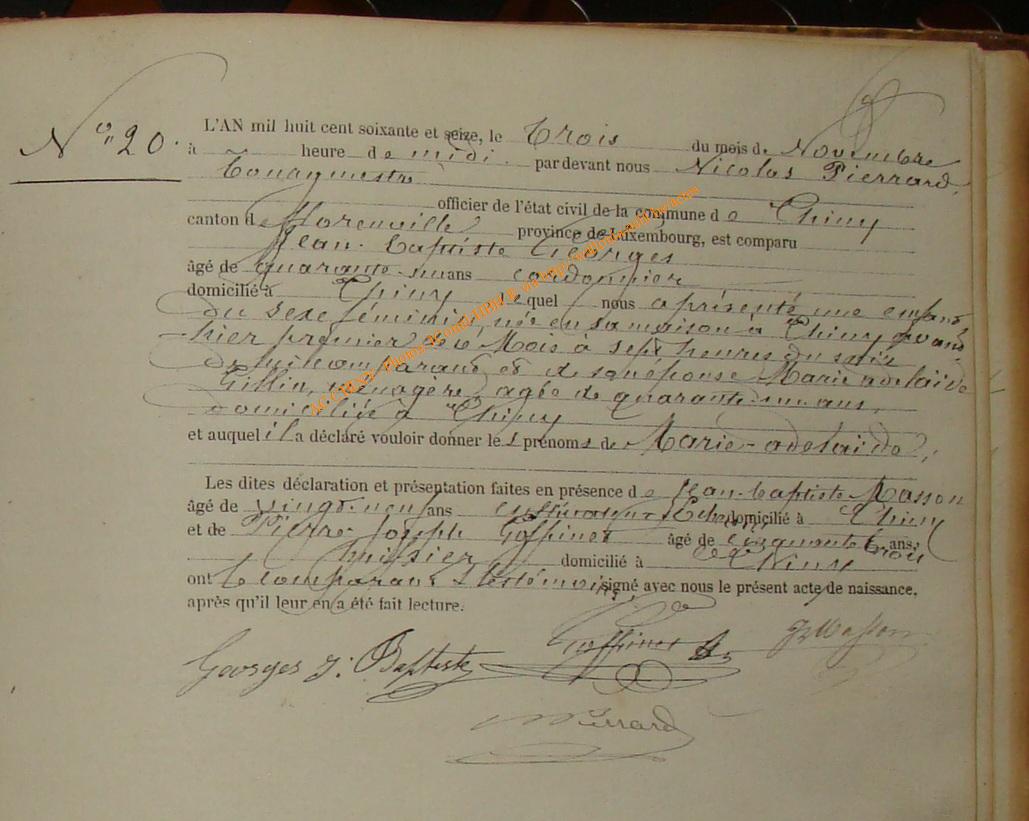 N° 20.
L'AN mil huit cent soixante et seize, le Trois du mois de Novembre
à heure de midi. par devant nous Nicolas Pierrard,
Bourgmestre
officier de l'état civil de la commune de Chiny
canton de Florenville province de Luxembourg, est comparu
Jean-Baptiste Georges
âgé de quarante-un ans cordonnier
domicilié à Chiny lequel nous a présenté une enfant
du sexe féminin, née en sa maison à Chiny avant
hier premier de ce Mois à sept heures du soir
de lui comparant et de son épouse Marie adelaïde
Gillin, ménagère, agée de quarante-un ans,
domiciliée à Chiny
et auquel il a déclaré vouloir donner les prénoms de Marie-adelaïde,
Les dites déclaration et présentation faites en présence de Jean-baptiste Masson
âgé de vingt-neuf ans cultivateur domicilié à Chiny
et de Pierre Joseph Goffinet âgé de cinquante trois ans,
domicilié à Chiny
ont le comparant & les témoins signé avec nous le présent acte de naissance,
après qu'il leur en a été fait lecture.
Georges J. Baptiste Goffinet JBMasson
NPierrard